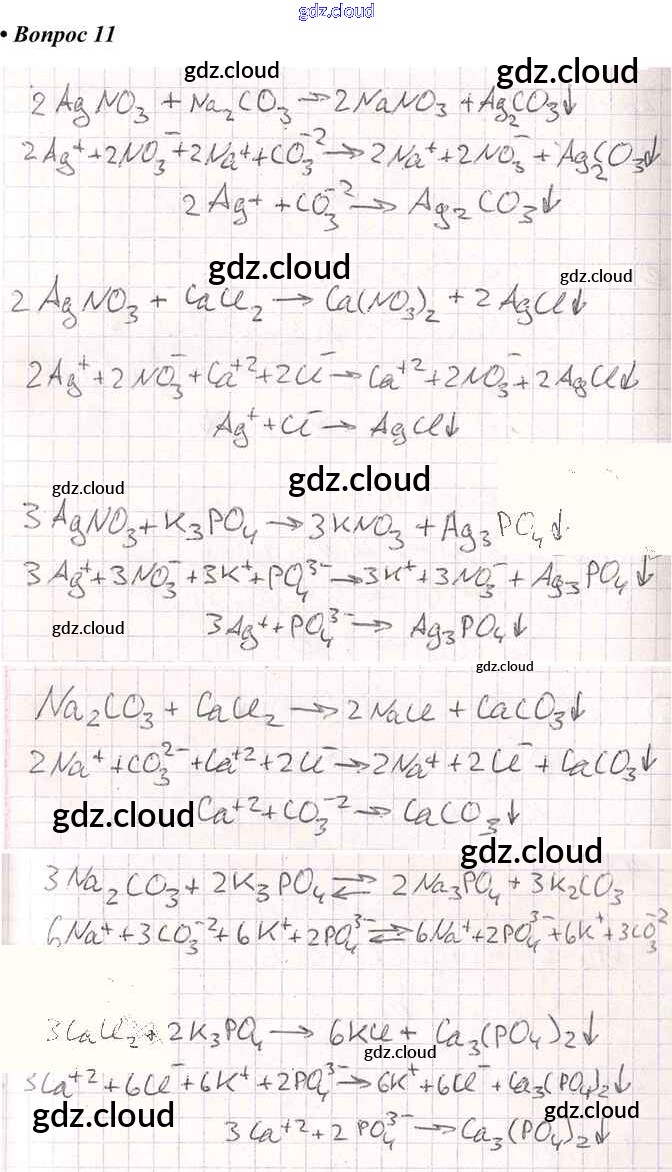 gdz.cloud
• Вопрос 11
gdz.cloud gdz.cloud
2AgNO₃ + Na₂CO₃ → 2NaNO₃ + Ag₂CO₃↓
2Ag⁺ + 2NO₃⁻ + 2Na⁺ + CO₃⁻² → 2Na⁺ + 2NO₃⁻ + Ag₂CO₃↓
2Ag⁺ + CO₃⁻² → Ag₂CO₃↓
gdz.cloud gdz.cloud
2AgNO₃ + CaCl₂ → Ca(NO₃)₂ + 2AgCl↓
2Ag⁺ + 2NO₃⁻ + Ca⁺² + 2Cl⁻ → Ca⁺² + 2NO₃⁻ + 2AgCl↓
Ag⁺ + Cl⁻ → AgCl↓
gdz.cloud gdz.cloud
3AgNO₃ + K₃PO₄ → 3KNO₃ + Ag₃PO₄↓
3Ag⁺ + 3NO₃⁻ + 3K⁺ + PO₄³⁻ → 3K⁺ + 3NO₃⁻ + Ag₃PO₄↓
gdz.cloud 3Ag⁺ + PO₄³⁻ → Ag₃PO₄↓
gdz.cloud
Na₂CO₃ + CaCl₂ → 2NaCl + CaCO₃↓
2Na⁺ + CO₃²⁻ + Ca⁺² + 2Cl⁻ → 2Na⁺ + 2Cl⁻ + CaCO₃↓
gdz.cloud Ca⁺² + CO₃⁻² → CaCO₃↓
gdz.cloud
3Na₂CO₃ + 2K₃PO₄ ⇌ 2Na₃PO₄ + 3K₂CO₃
6Na⁺ + 3CO₃⁻² + 6K⁺ + 2PO₄³⁻ ⇌ 6Na⁺ + 2PO₄³⁻ + 6K⁺ + 3CO₃⁻²
3CaCl₂ + 2K₃PO₄ → 6KCl + Ca₃(PO₄)₂↓
gdz.cloud
3Ca⁺² + 6Cl⁻ + 6K⁺ + 2PO₄³⁻ → 6K⁺ + 6Cl⁻ + Ca₃(PO₄)₂↓
gdz.cloud gdz.cloud
3Ca⁺² + 2PO₄³⁻ → Ca₃(PO₄)₂↓